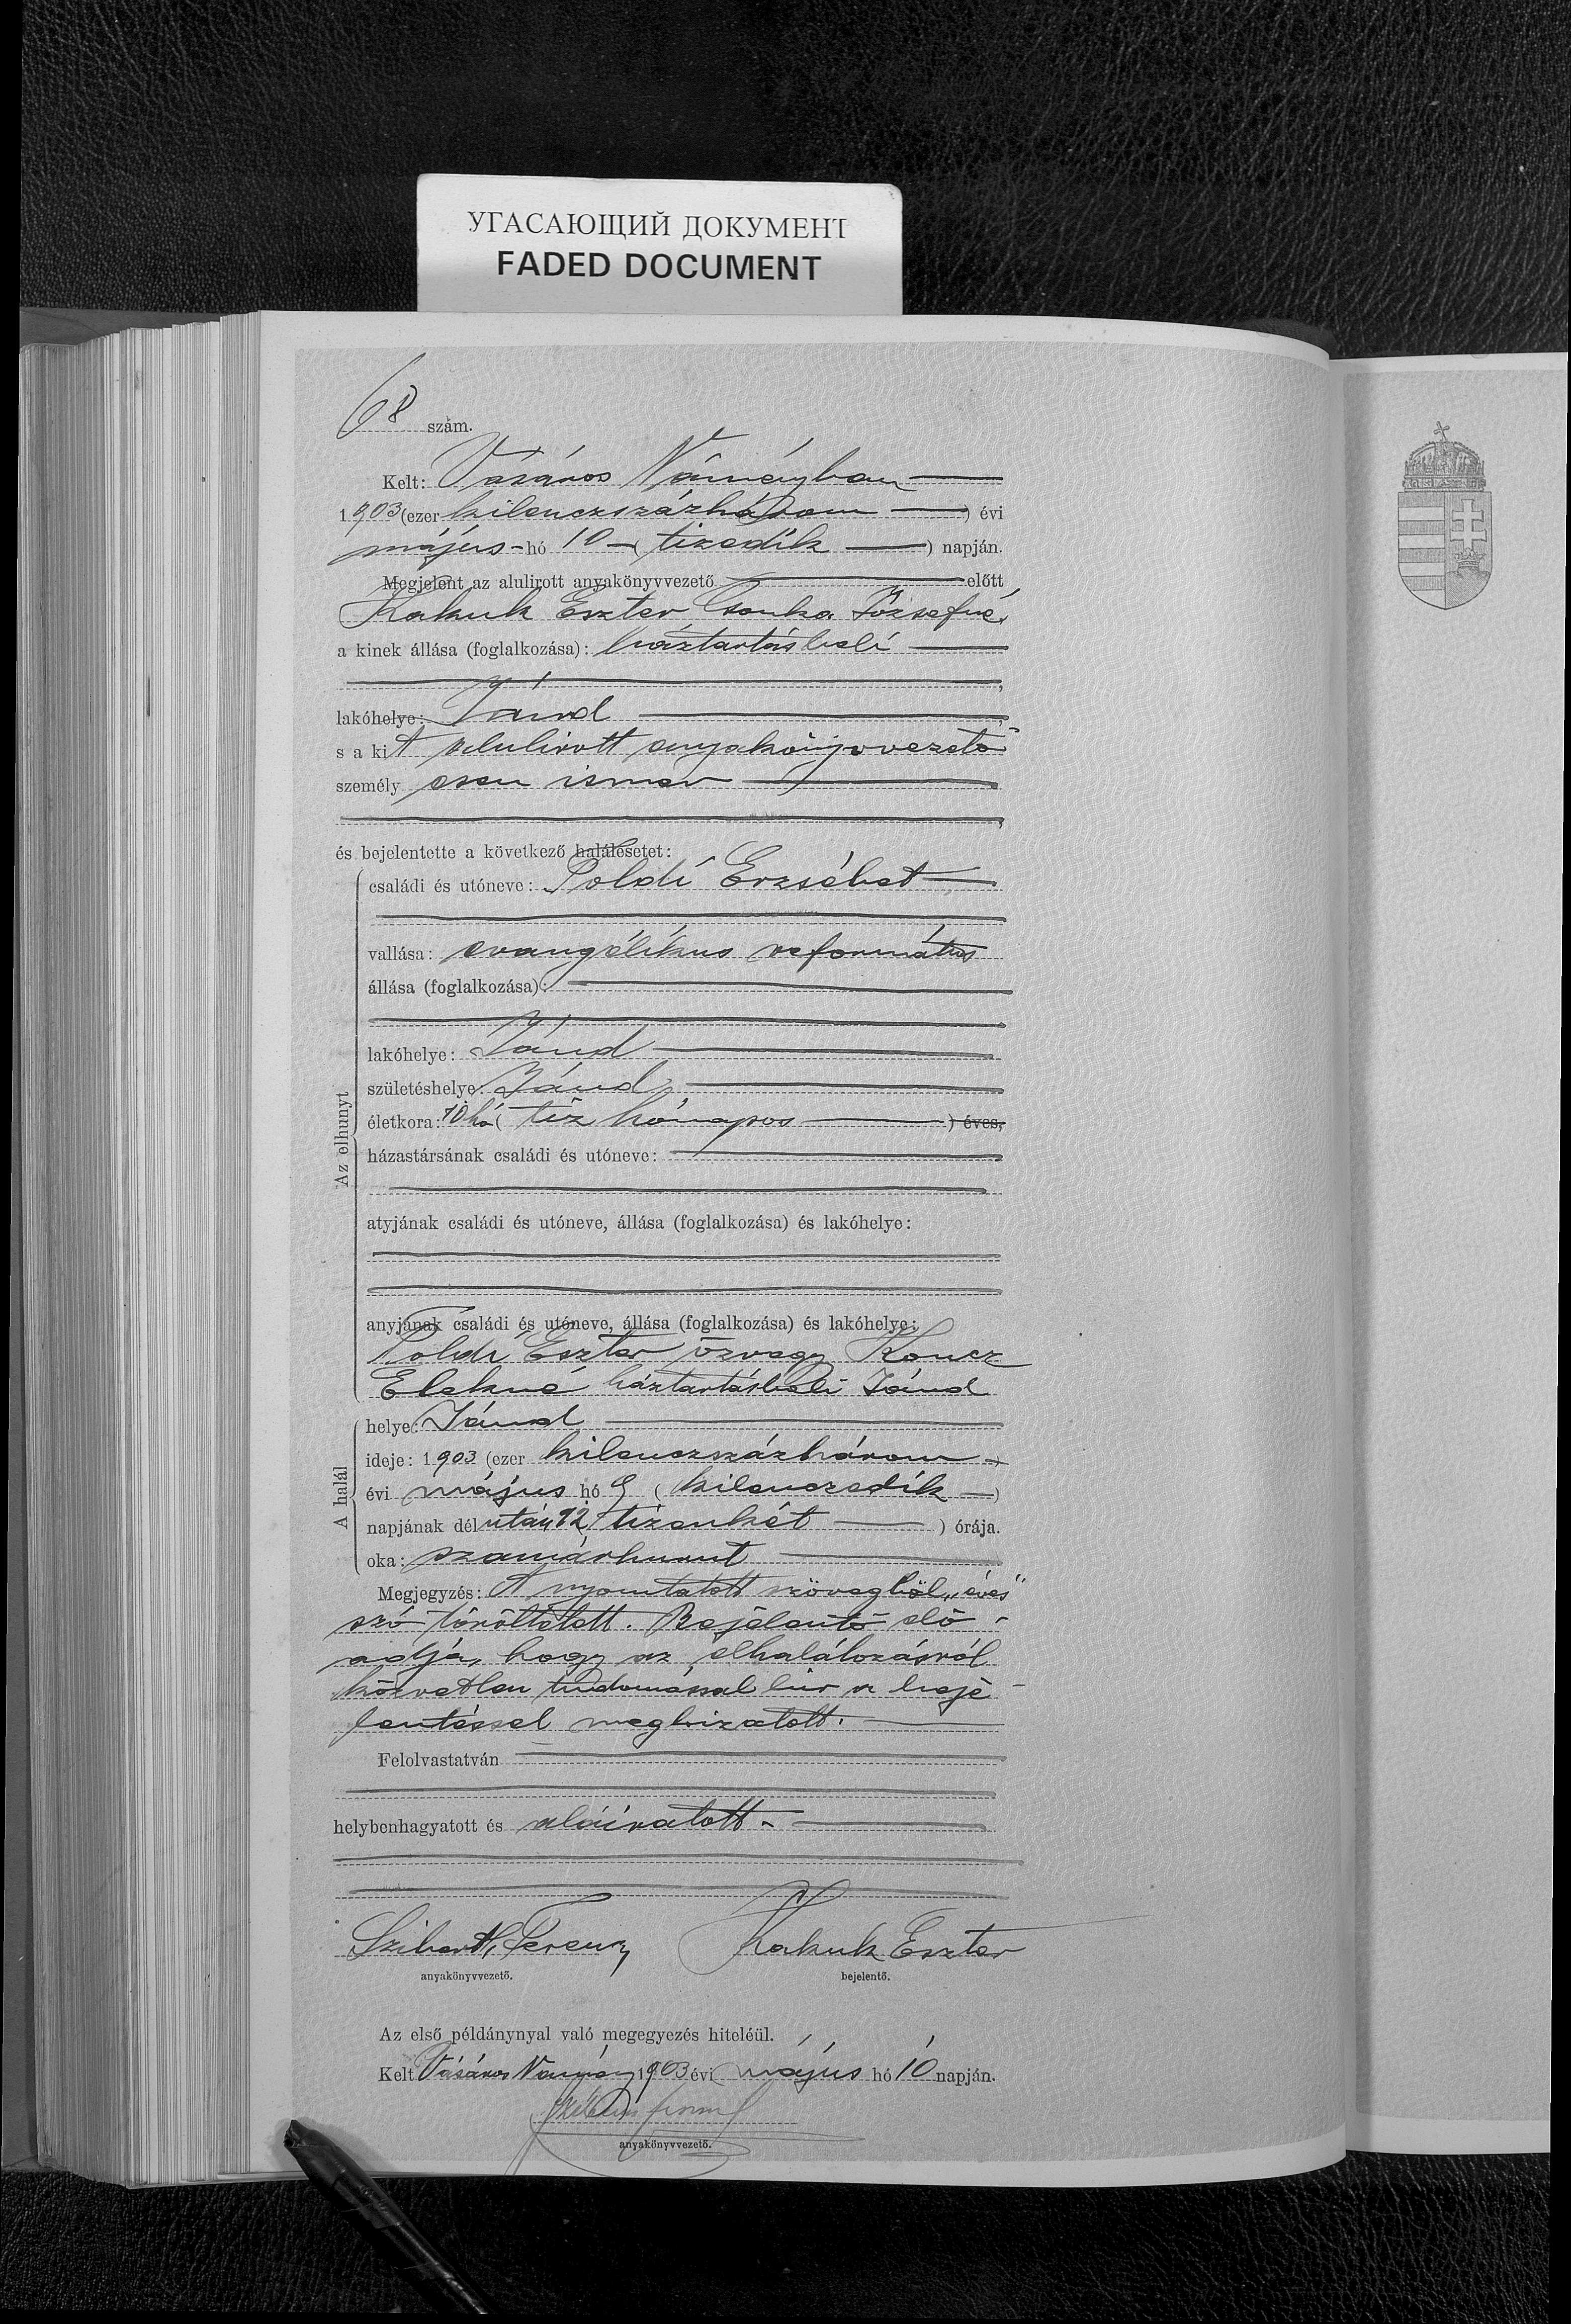 УГАСАЮЩИЙ ДОКУМЕНТ
FADED DOCUMENT
68 szám.
Kelt: Vásáros Naményban
1903 (ezer kilenczszázhárom) évi
május hó 10 (tizedik) napján.
Megjelent az alulirott anyakönyvvezető előtt
Kakuk Eszter Csonka Józsefné,
a kinek állása (foglalkozása): háztartásbeli
lakóhelye: Jánd
s a kit alulirott anyakönyvvezető
személyesen ismer
és bejelentette a következő halálesetet:
Az elhunyt
családi és utóneve: Poldi Erzsébet
vallása: evangélikus református
állása (foglalkozása):
lakóhelye: Jánd
születéshelye: Jánd
életkora: 10 hó (tíz hónapos) éves,
házastársának családi és utóneve:
atyjának családi és utóneve, állása (foglalkozása) és lakóhelye:
anyjának családi és utóneve, állása (foglalkozása) és lakóhelye:
Poldi Eszter özvegy Koncz
Elekné háztartásbeli Jánd
A halál
helye: Jánd
ideje: 1903 (ezer kilenczszázhárom)
évi május hó 9 (kilenczedik)
napjának délután 12 (tizenkét) órája.
oka: szamárhurut
Megjegyzés: A nyomtatott szövegből „éves"
szó töröltetett. Bejelentő elő-
adja, hogy az elhalálozásról
közvetlen tudomással bír a bejé-
lentéssel megbizatott.
Felolvastatván
helybenhagyatott és aláíratott.
Ferencz Kakuk Eszter
anyakönyvvezető. bejelentő.
Az első példánynyal való megegyezés hiteléül.
Kelt Vásáros Namény 1903 évi május hó 10 napján.
anyakönyvvezető.